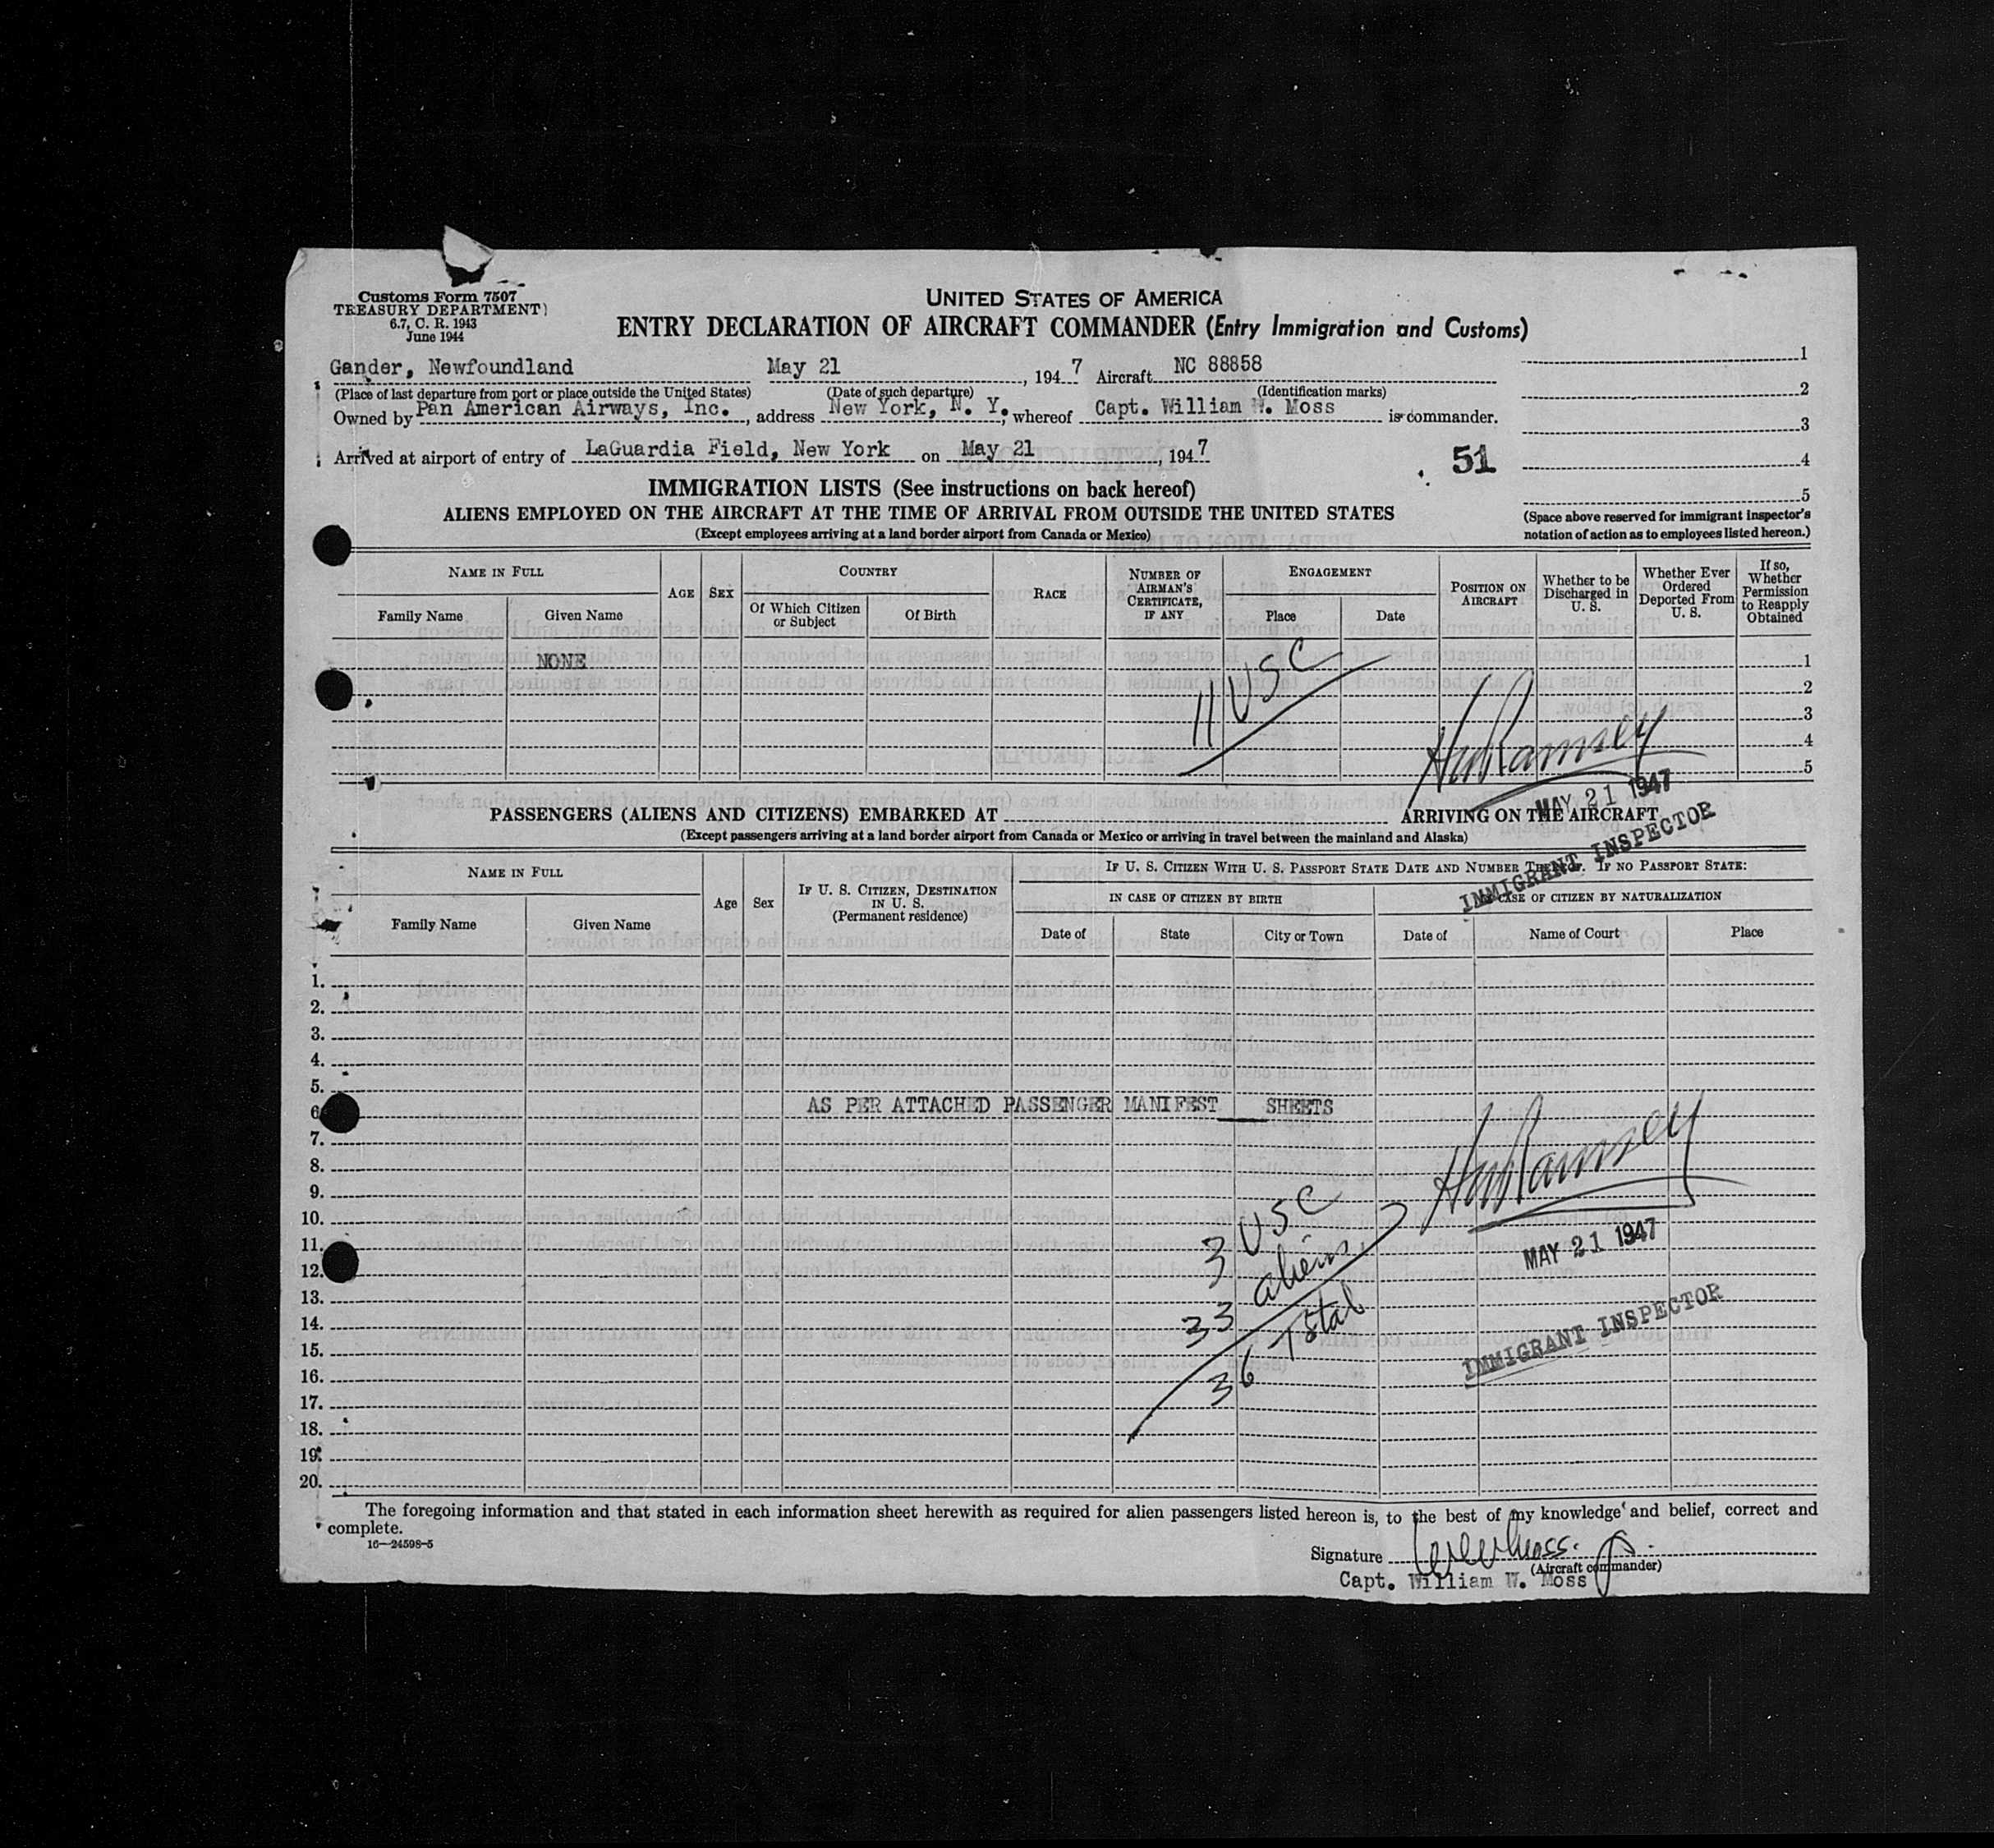 Customs Form 7507
TREASURY DEPARTMENT
6.7, C. R. 1943
June 1944
UNITED STATES OF AMERICA
ENTRY DECLARATION OF AIRCRAFT COMMANDER (Entry Immigration and Customs)
Gander, Newfoundland May 21, 1947 Aircraft NC 88858
(Place of last departure from port or place outside the United States) (Date of such departure) (Identification marks)
Owned by Pan American Airways, Inc., address New York, N. Y., whereof Capt. William W. Moss is commander.
Arrived at airport of entry of LaGuardia Field, New York on May 21, 1947
51
1
2
3
4
5
(Space above reserved for immigrant inspector's
notation of action as to employees listed hereon.)
IMMIGRATION LISTS (See instructions on back hereof)
ALIENS EMPLOYED ON THE AIRCRAFT AT THE TIME OF ARRIVAL FROM OUTSIDE THE UNITED STATES
(Except employees arriving at a land border airport from Canada or Mexico)
NAME IN FULL
Family Name
Given Name
AGE
SEX
COUNTRY
Of Which Citizen or Subject
Of Birth
RACE
NUMBER OF AIRMAN'S CERTIFICATE, IF ANY
ENGAGEMENT
Place
Date
POSITION ON AIRCRAFT
Whether to be Discharged in U. S.
Whether Ever Ordered Deported From U. S.
If so, Whether Permission to Reapply Obtained
NONE
1
2
3
4
5
11 USC
HW Ramsey
MAY 21 1947
IMMIGRANT INSPECTOR
PASSENGERS (ALIENS AND CITIZENS) EMBARKED AT ARRIVING ON THE AIRCRAFT
(Except passengers arriving at a land border airport from Canada or Mexico or arriving in travel between the mainland and Alaska)
NAME IN FULL
Family Name
Given Name
Age
Sex
IF U. S. CITIZEN, DESTINATION IN U. S.
(Permanent residence)
IF U. S. CITIZEN WITH U. S. PASSPORT STATE DATE AND NUMBER THEREOF. IF NO PASSPORT STATE:
IN CASE OF CITIZEN BY BIRTH
IN CASE OF CITIZEN BY NATURALIZATION
Date of
State
City or Town
Date of
Name of Court
Place
1.
2.
3.
4.
5.
6.
AS PER ATTACHED PASSENGER MANIFEST SHEETS
7.
8.
9.
10.
11.
12.
13.
14.
15.
16.
17.
18.
19.
20.
3 USC
33 aliens
36 Total
HW Ramsey
MAY 21 1947
IMMIGRANT INSPECTOR
The foregoing information and that stated in each information sheet herewith as required for alien passengers listed hereon is, to the best of my knowledge and belief, correct and
complete.
16—24598-5
Signature
(Aircraft commander)
Capt. William W. Moss